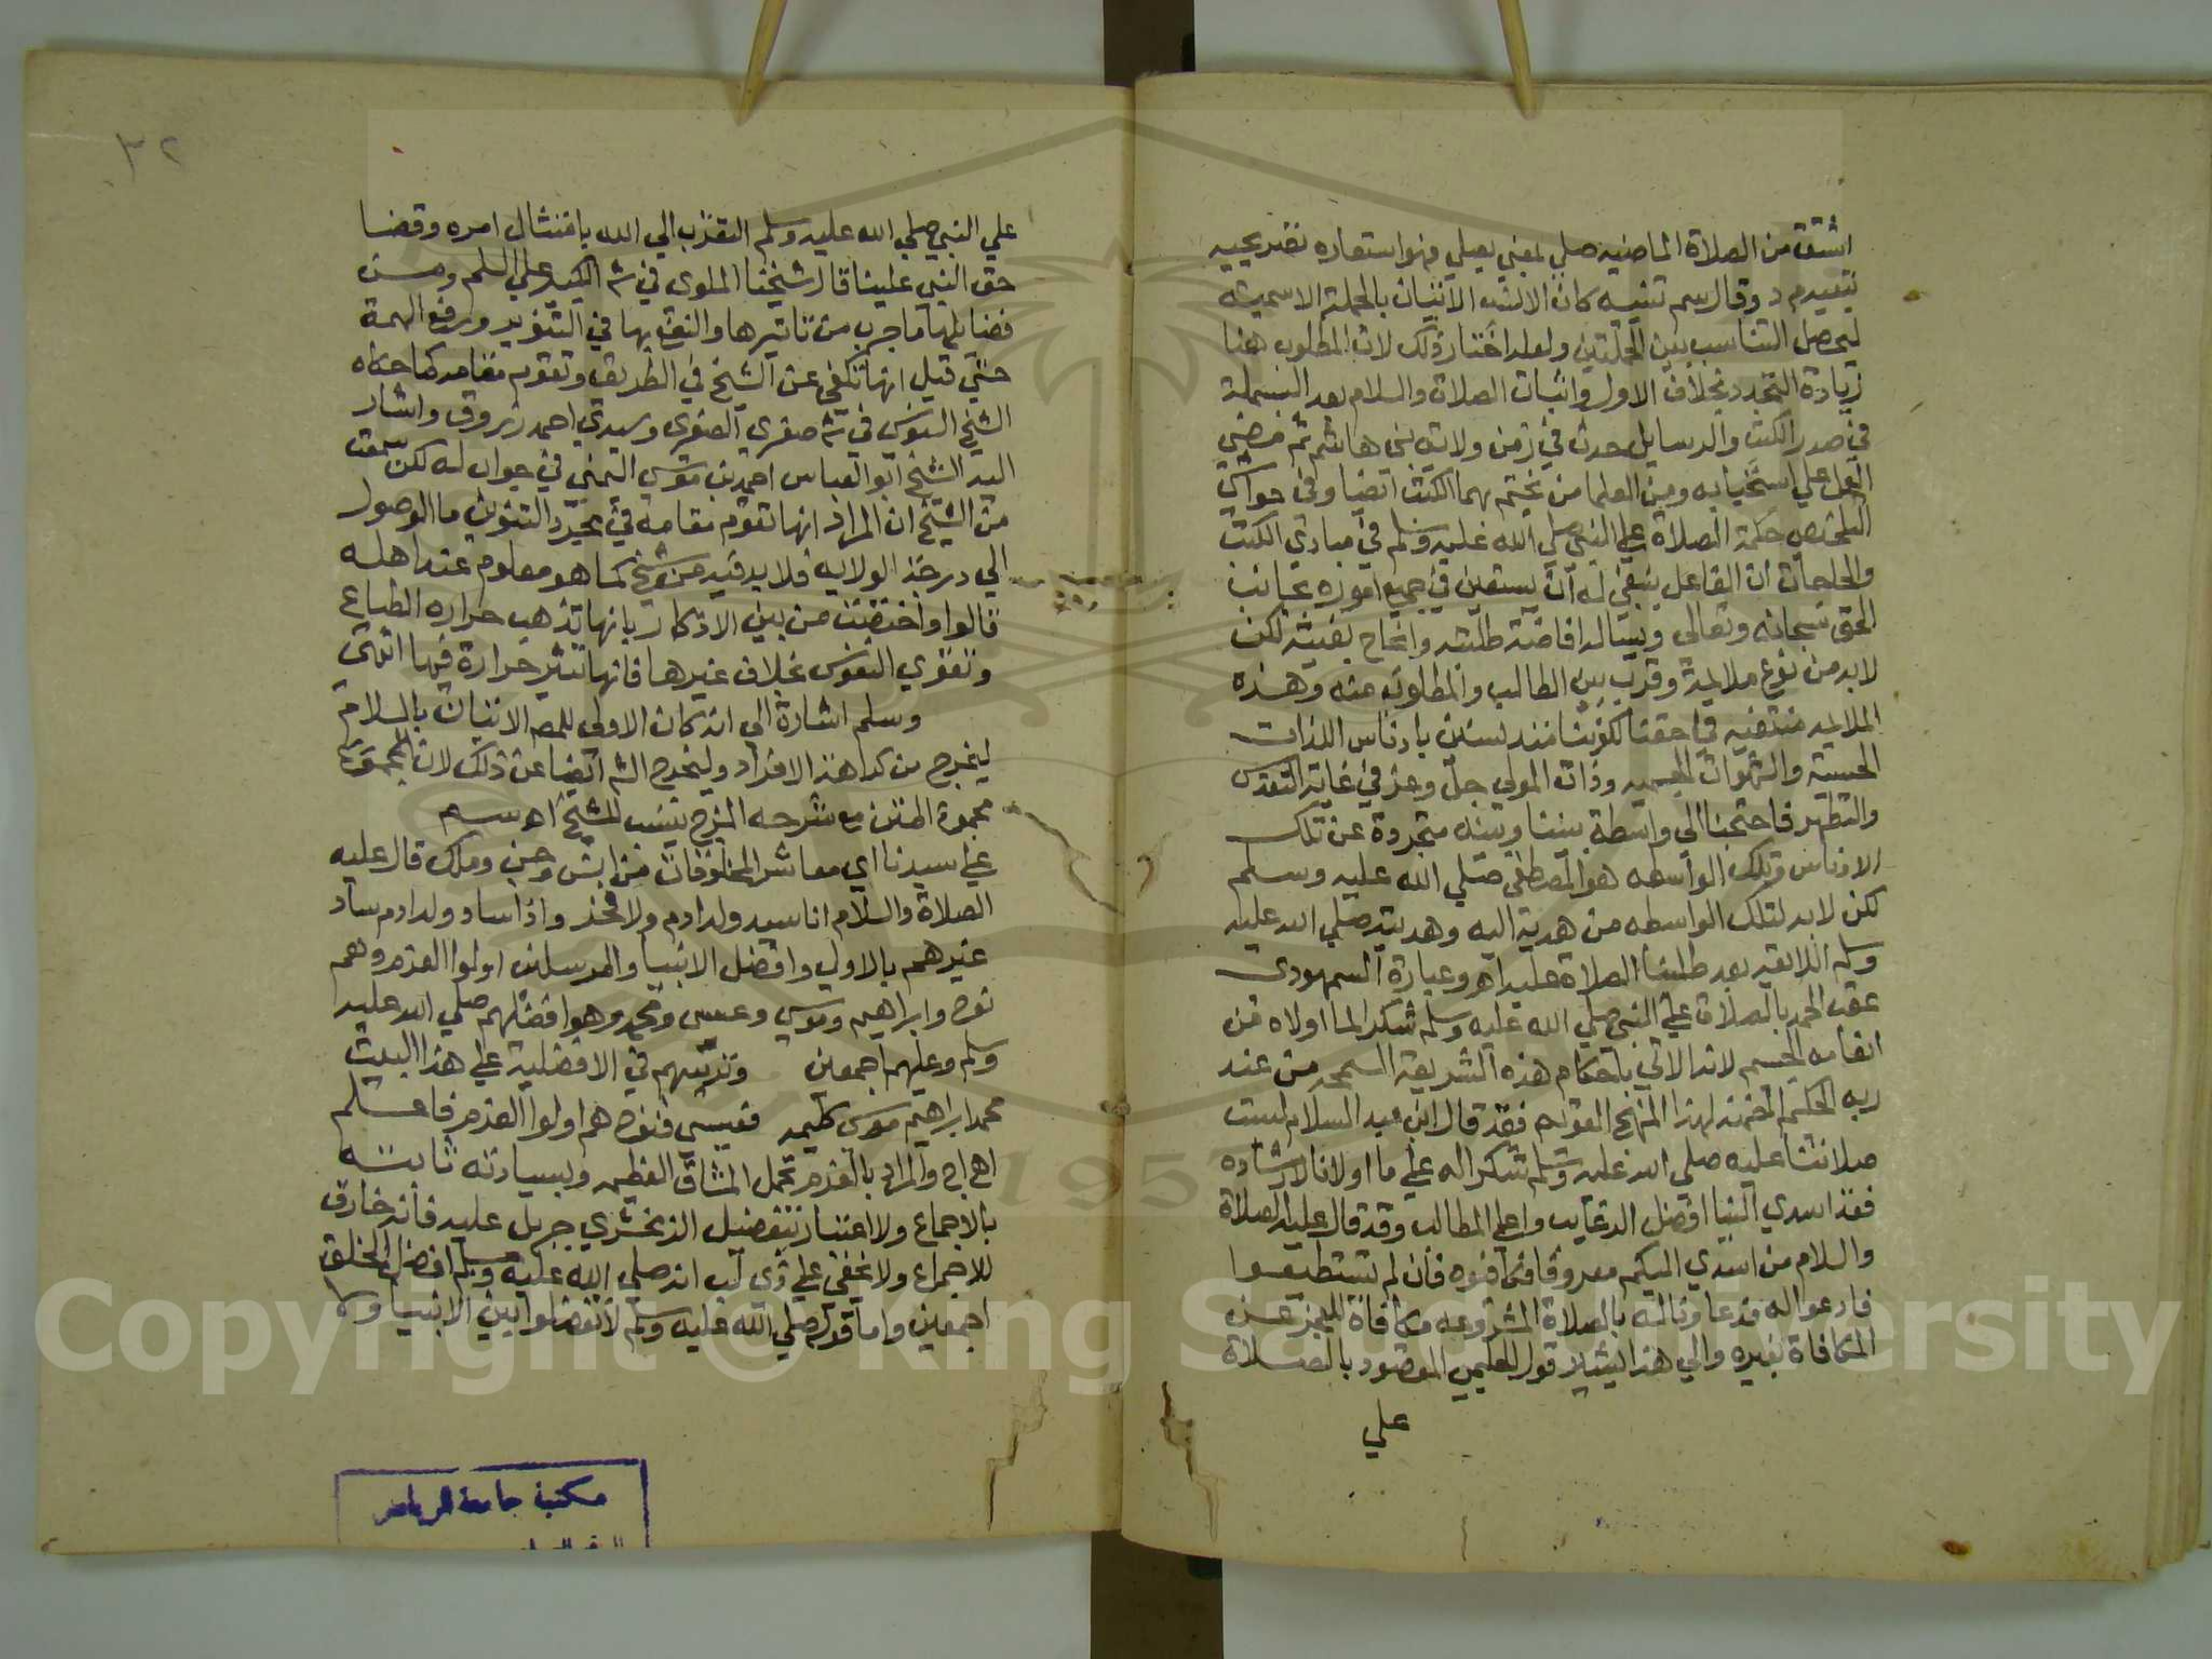 اشتق من الصلاة الماضيه صلي بمعني يصلي فهو استعاره تصريحيه
وقال سم تنبيه كان الانسب الاتيان بالجملة الاسميه
ليحصل التناسب بين الجملتين ولعله اختار ذلك لان المطلوب هنا
زيادة التجدد بخلاف الاول واثبات الصلاة والسلام بعد البسملة
في صدر الكتب والرسايل حدث في زمن ولاية بني هاشم ثم مضي
العمل علي استحبابه ومن العلما من يختم بهما الكتب ايضا وفي حواشي
التلخيص حكمة الصلاة علي النبي صلي الله عليه وسلم في مبادي الكتب
والحاجات ان الفاعل ينبغي له ان يستعين في جميع اموره بجانب
الحق سبحانه وتعالى ويسال افاضة طلبته وانجاح بغيته لكن
لا بد من نوع ملايمة وقرب بين الطالب والمطلوب منه وهذه
الملايمه منتفيه في حقنا لكوننا متدنسين بادناس اللذات
الحسية والشهوات وذات المولي جل وعز في غاية التقدس
والتطهر فاحتجنا الي واسطة بيننا وبينه متجردة عن تلك
الادناس وتلك الواسطه هو المصطفي صلي الله عليه وسلم
لكن لا بد لتلك الواسطه من هدية اليه وهديته صلي الله عليه
وسلم اللايقه بعد طلبنا الصلاة عليه اهـ وعبارة السمهودي
عقب الحمد بالصلاة علي النبي صلي الله عليه وسلم شكرا لما اولاه من
انعامه الجسيم لانه الاتي باحكام هذه الشريعة السمحه من عند
ربه الحكيم لهذا المنهج القويم فقد قال ابن عبد السلام ليست
صلاتنا عليه صلي الله عليه وسلم شكرا له علي ما اولانا لارشاده
فقد اسدي الينا افضل الرغايب واعلي المطالب وقد قال عليه الصلاة
والسلام من اسدي اليكم معروفا فكافئوه فان لم تستطيعوا
فادعوا له فدعاؤنا له بالصلاة المشروعه مكافاة للعجز عن
المكافاة بغيره والي هذا يشير قول الحليمي المقصود بالصلاة
علي
٣٢
علي النبي صلي الله عليه وسلم التقرب الي الله بامتثال امره وقضا
حق النبي علينا قال شيخنا الملوي في ش الكبير علي السلم ومن
فضايلها ما جرب من تاثيرها والنفع بها في التنوير ورفع الهمة
حتي قيل انها تكفي عن الشيخ في الطريق وتقوم مقامه كما حكاه
الشيخ السنوسي في ش صغري الصغري وسيدي احمد زروق واشار
اليه الشيخ ابو العباس احمد بن موسي اليمني في جواب له لكن سمعت
من الشيخ ان المراد انها تقوم مقامه في مجرد التنوير اما الوصول
الي درجة الولايه فلا بد فيه من شيخ كما هو معلوم عند اهله
قالوا واختصت من بين الاذكار بانها تذهب حرارة الطباع
وتقوي النفوس بخلاف غيرها فانها تثير حرارة فيها انتهي
وسلم اشارة الي انه كان الاولي للمص الاتيان بالسلام
ليخرج من كراهة الافراد وليخرج الش ايضا عن ذلك لان مجموع
مجموع المتن مع شرحه المزج ينسب للشيخ اهـ سم
علي سيدنا اي معاشر المخلوقات من انس وجن وملك قال عليه
الصلاة والسلام انا سيد ولد ادم ولا فخر واذا ساد ولد ادم ساد
غيرهم بالاولي وافضل الانبيا والمرسلين اولوا العزم وهم
نوح وابراهيم وموسي وعيسي ومحمد وهو افضلهم صلي الله عليه
وسلم وعليهم اجمعين وترتيبهم في الافضلية علي هذا البيت
محمد ابراهيم موسي كليمه فعيسي فنوح هم اولوا العزم فاعلم
والمراد بالعزم تحمل المشاق العظيمه وسيادته ثابته
بالاجماع ولا اعتبار بتفضيل الزمخشري جبريل عليه فانه خارق
للاجماع ولا يخفي علي ذي لب انه صلي الله عليه وسلم افضل الخلق
اجمعين واما قوله صلي الله عليه وسلم لا تفضلوا بين الانبيا ولا
مكتبة جامعة الرياض
Copyright © King Saud University
1957